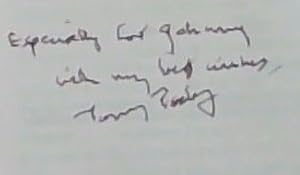 Especially for Johnny
with my best wishes,
Tony